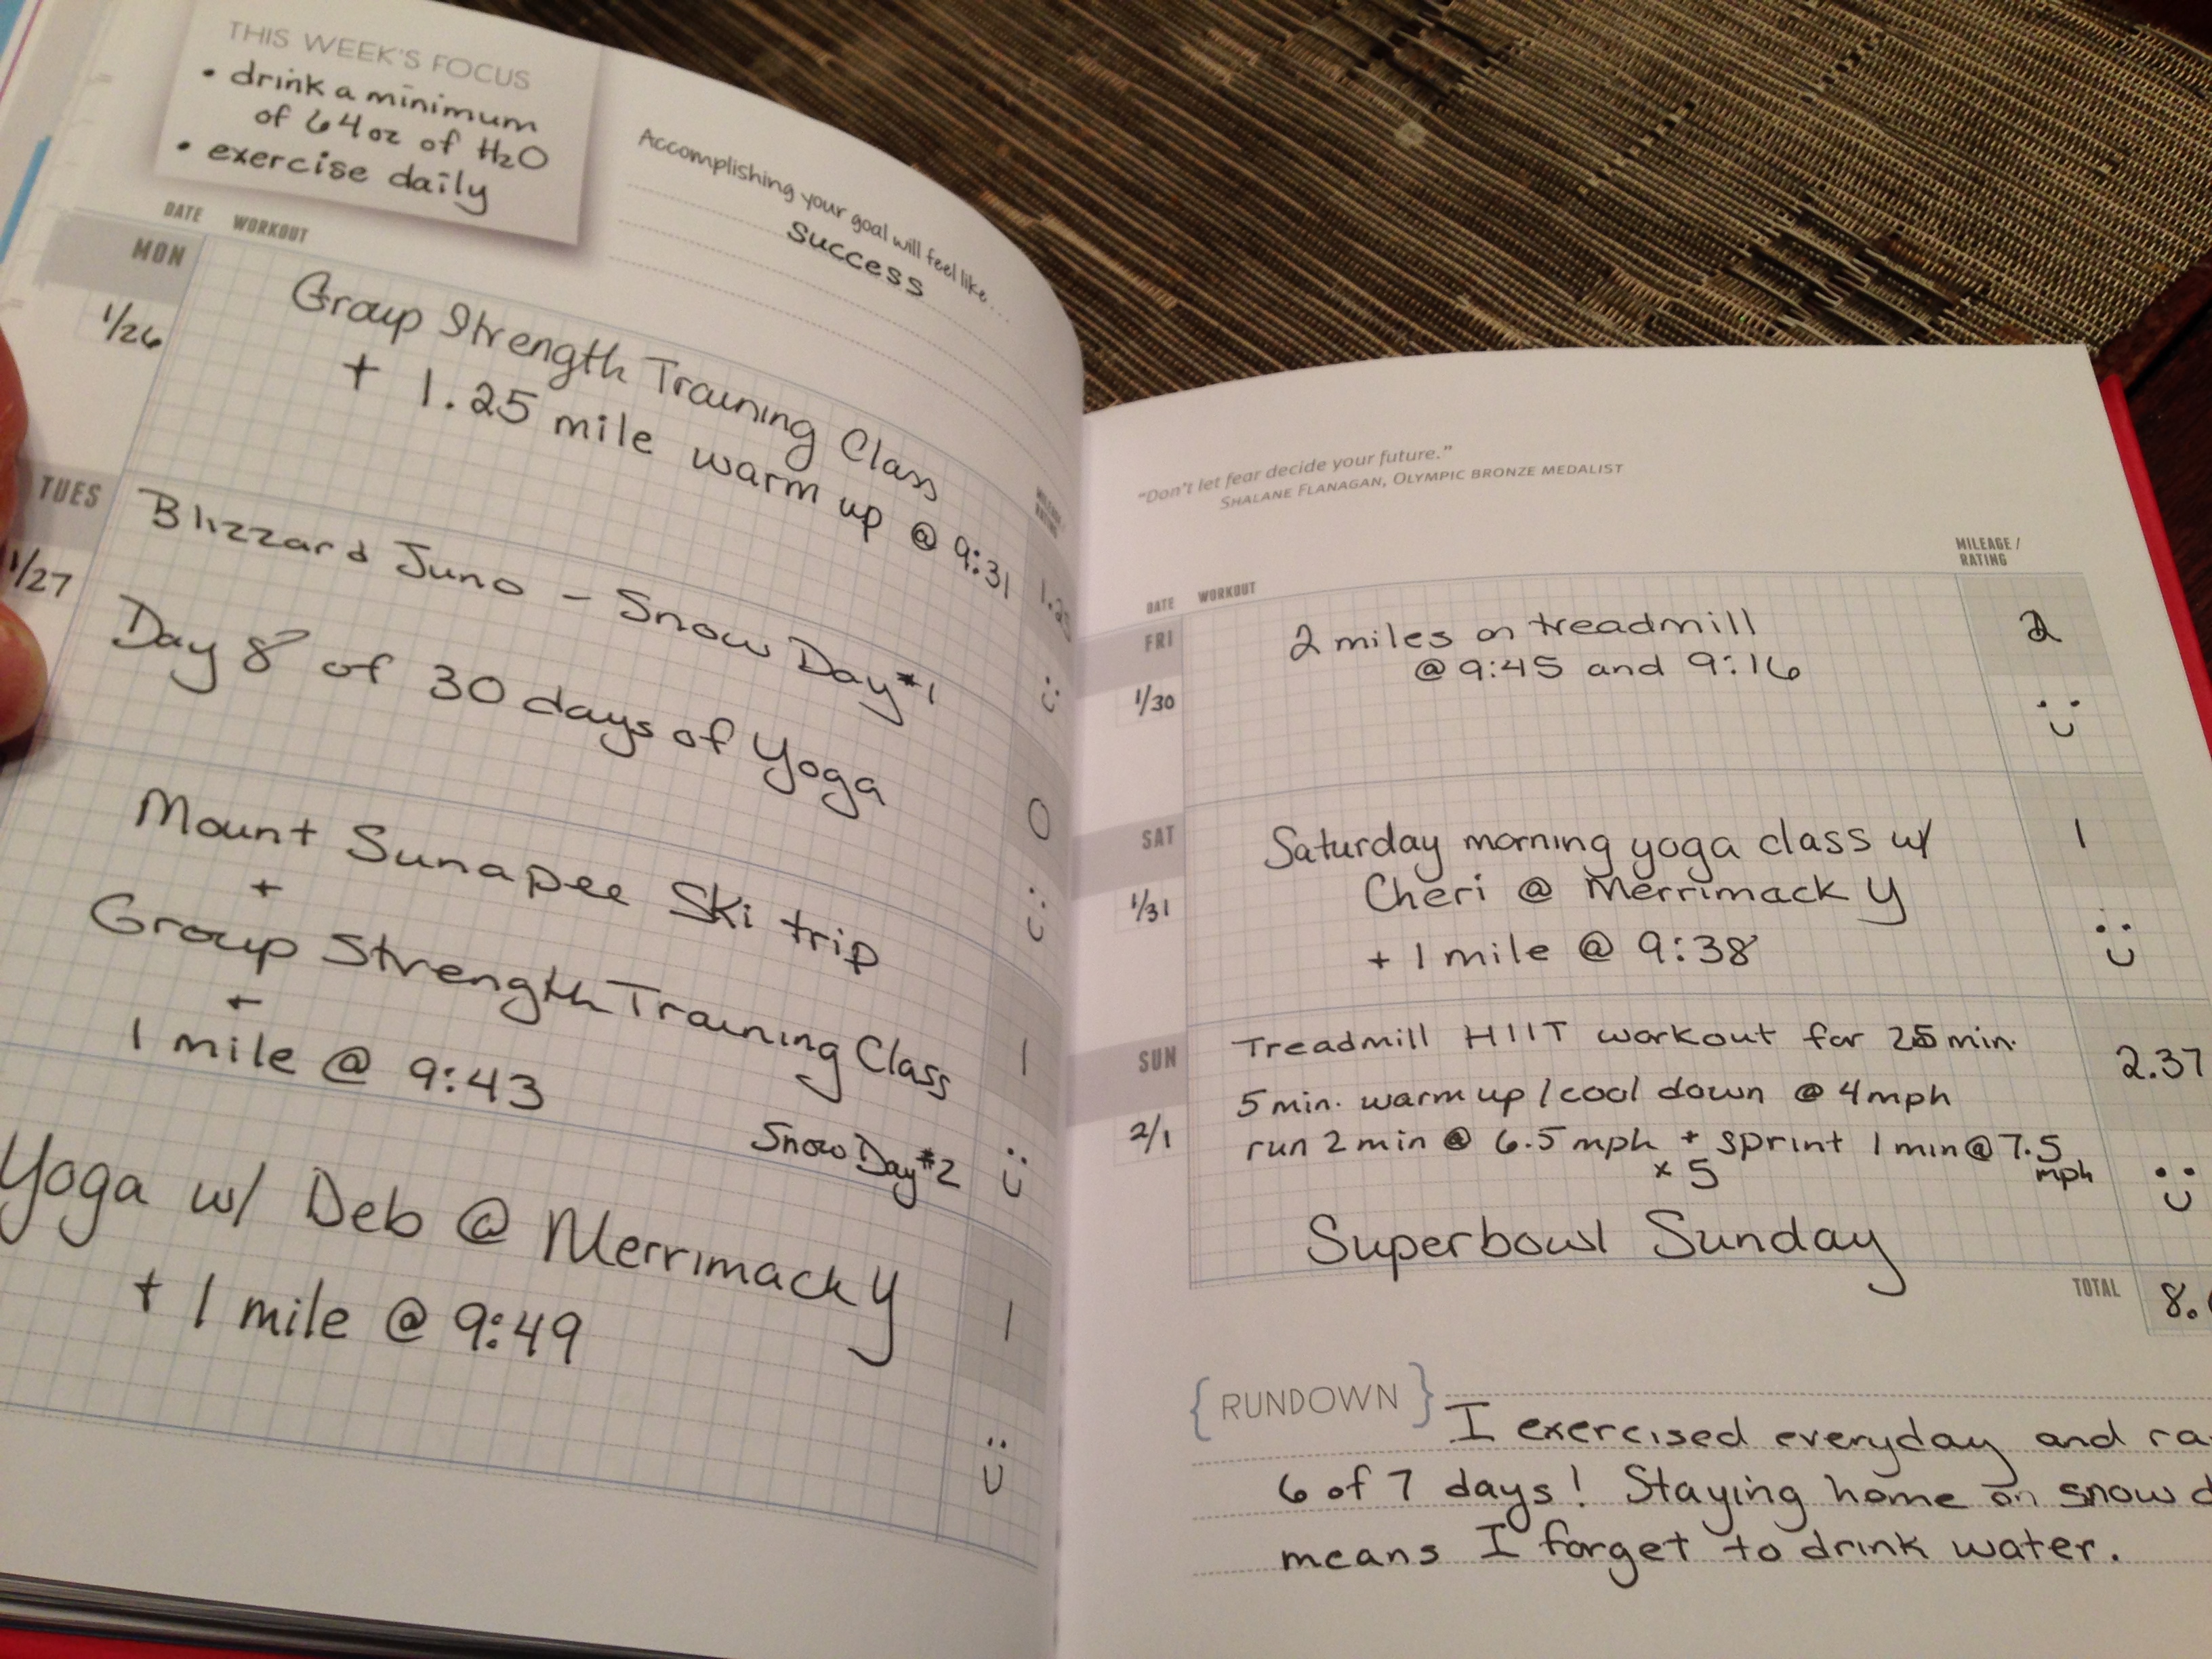 THIS WEEK'S FOCUS
• drink a minimum
of 64oz of H2O
• exercise daily
Accomplishing your goal will feel like...
success
DATE WORKOUT
MILEAGE/
RATING
MON
1/26
Group Strength Training Class
+ 1.25 mile warm up @ 9:31
1.25
TUES
1/27
Blizzard Juno - Snow Day #1
Day 8 of 30 days of Yoga
0
Mount Sunapee Ski trip
+
Group Strength Training Class
+
1 mile @ 9:43
1
Snow Day #2
Yoga w/ Deb @ Merrimack Y
+ 1 mile @ 9:49
1
"Don't let fear decide your future."
SHALANE FLANAGAN, OLYMPIC BRONZE MEDALIST
DATE WORKOUT
MILEAGE/
RATING
FRI
1/30
2 miles on treadmill
@ 9:45 and 9:16
2
SAT
1/31
Saturday morning yoga class w/
Cheri @ Merrimack Y
+ 1 mile @ 9:38
1
SUN
2/1
Treadmill HIIT workout for 25 min.
5 min. warm up / cool down @ 4mph
run 2 min @ 6.5 mph + sprint 1 min @ 7.5
mph
x 5
2.37
Superbowl Sunday
TOTAL
8.
{RUNDOWN}
I exercised everyday and
6 of 7 days! Staying home on snow
means I forget to drink water.